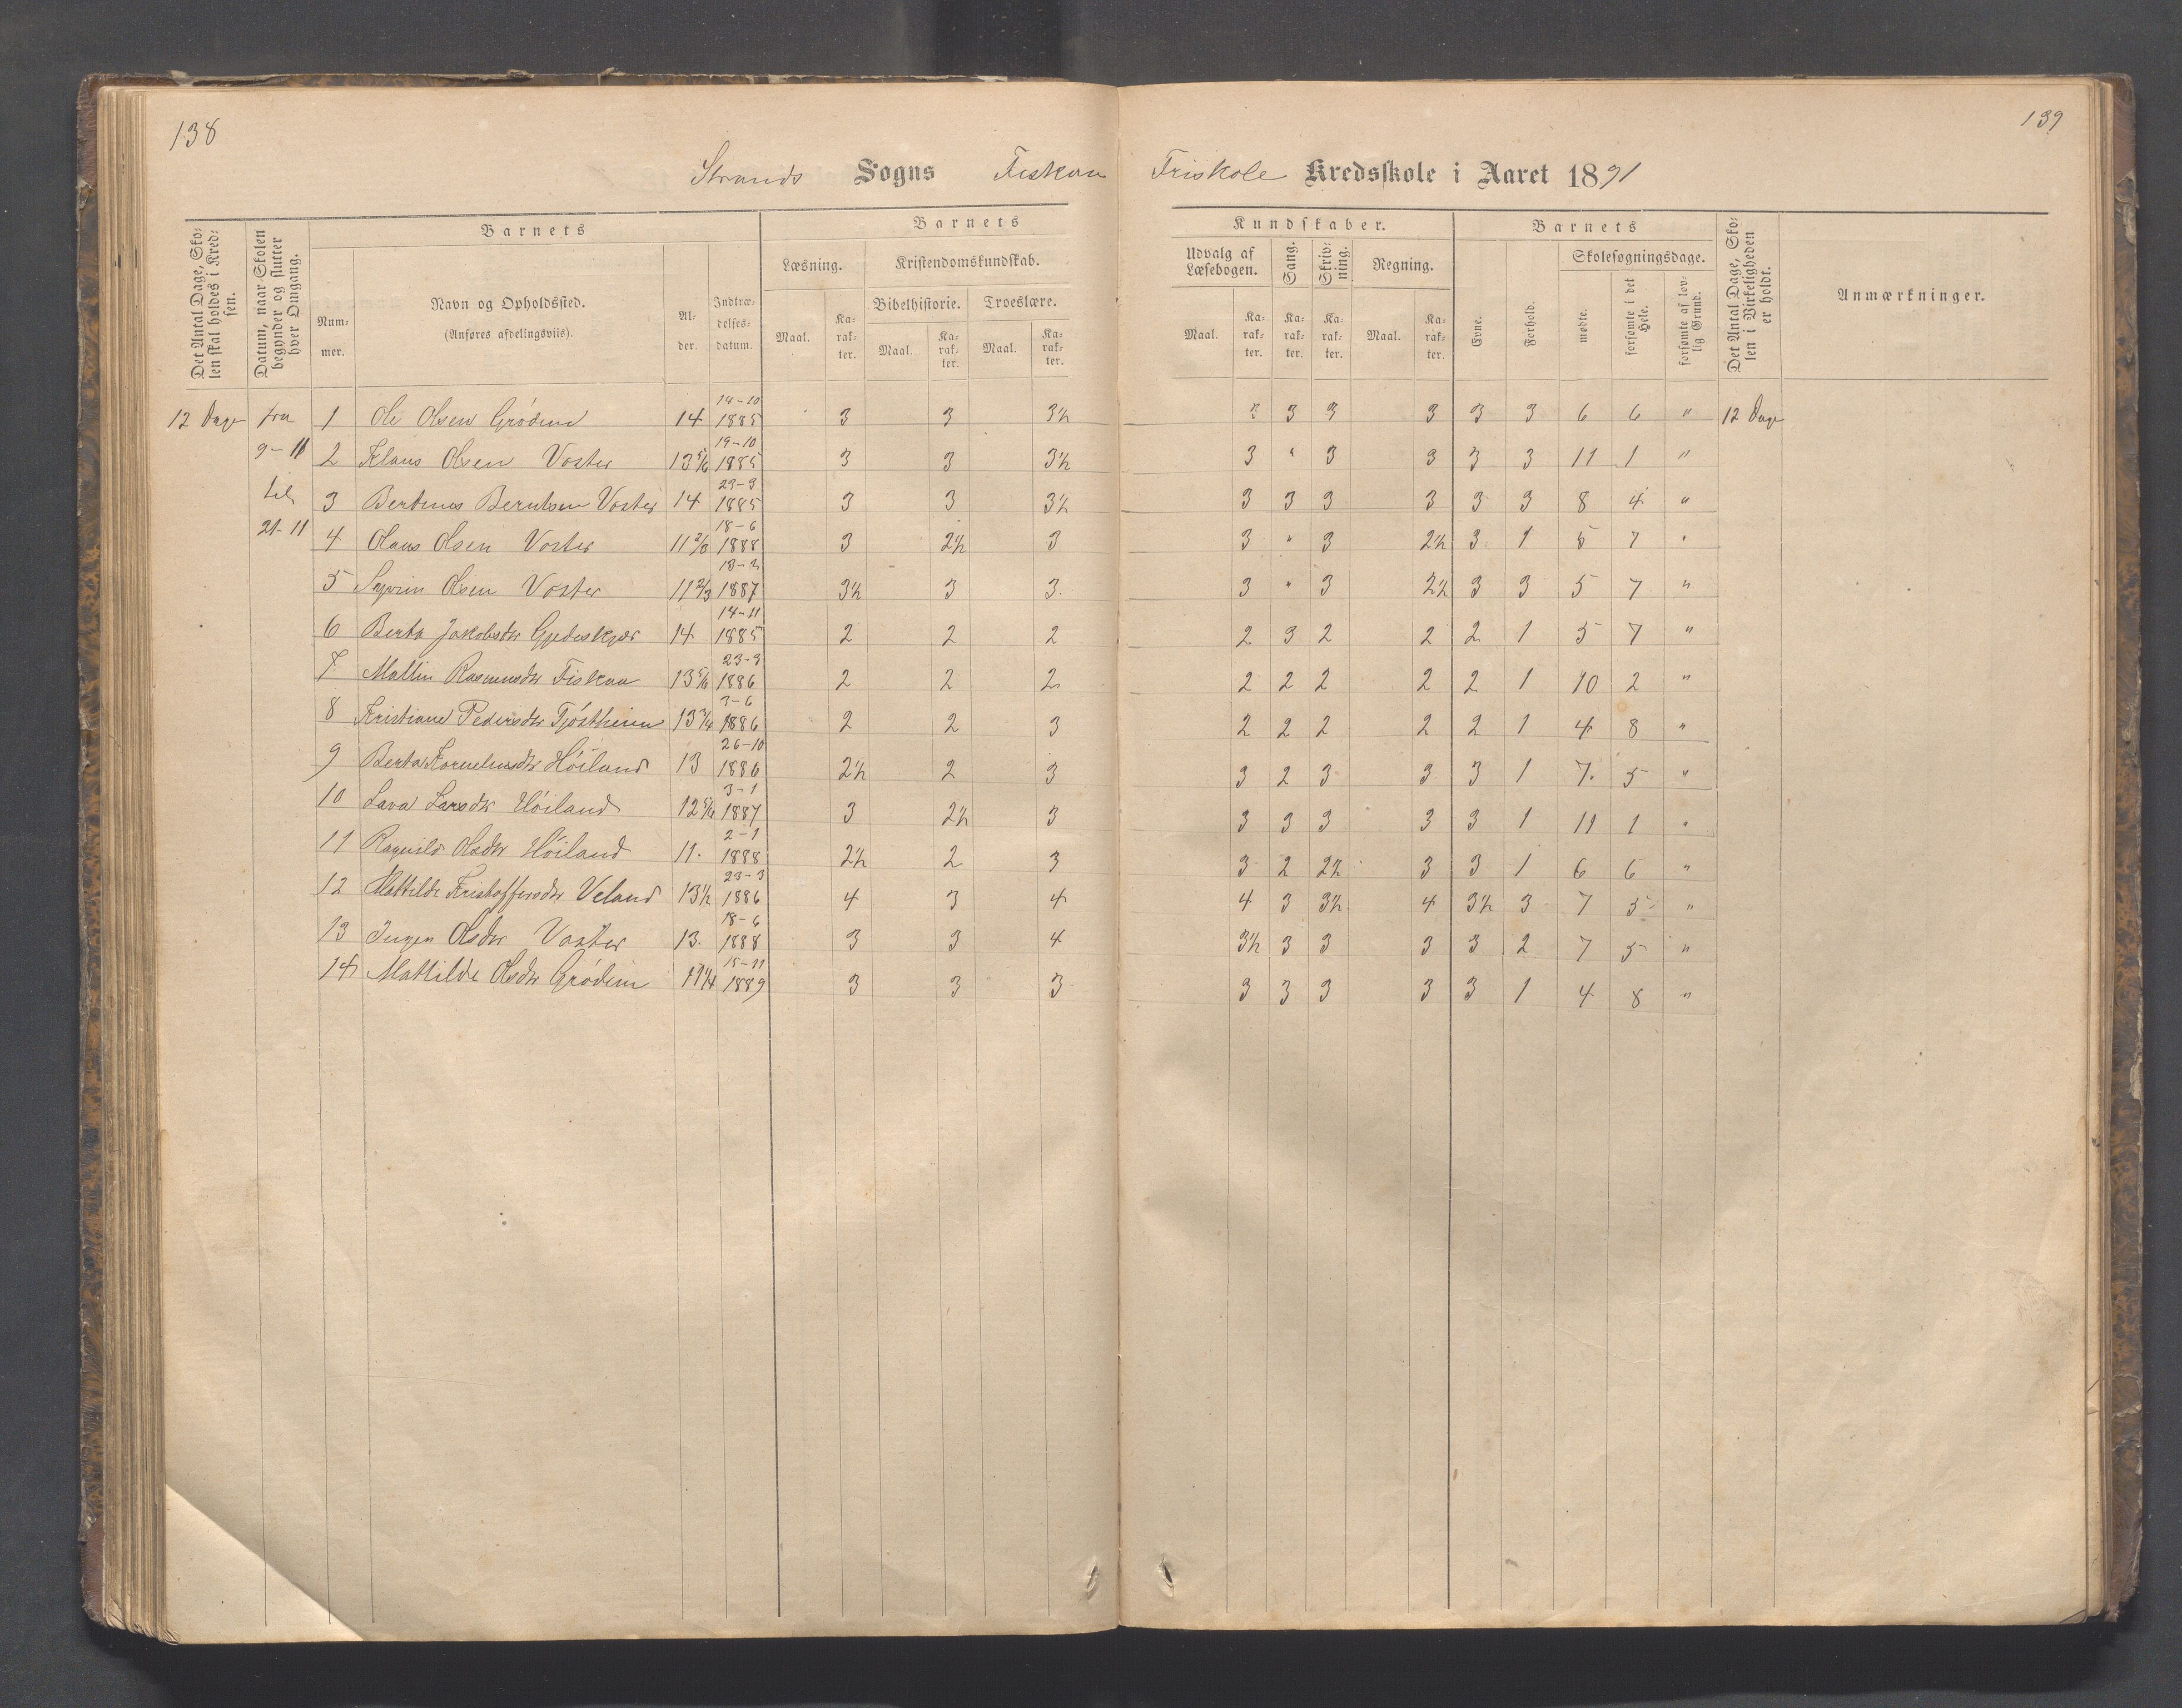 138
139
Strands Sogns Fiskaa Friskole Kredsskole i Aaret 1891
Det Antal Dage, Skolen skal holdes i Kredsen.
Datum, naar Skolen begynder og slutter hver Omgang.
Barnets
Nummer.
Navn og Opholdssted.
(Anføres afdelingsviis).
Alder.
Indtrædelsesdatum.
Barnets Kundskaber.
Læsning.
Maal.
Karakter.
Kristendomskundskab.
Bibelhistorie.
Maal.
Karakter.
Troeslære.
Maal.
Karakter.
Udvalg af Læsebogen.
Maal.
Karakter.
Sang.
Karakter.
Skrivning.
Karakter.
Regning.
Maal.
Karakter.
Barnets
Evne.
Forhold.
Skolesøgningsdage.
mødte.
forsømte i det Hele.
forsømte af lovlig Grund.
Det Antal Dage, Skolen i Virkeligheden er holdt.
Anmærkninger.
12 Dage fra 1 Ole Olsen Grödem 14 14-10 1885 3 3 3½ 3 3 3 3 3 3 6 6 " 12 Dage
9-11 2 Klaus Olsen Voster 13 5/6 19-10 1885 3 3 3½ 3 " 3 3 3 3 11 1 "
til 3 Bertinus Berntsen Voster 14 23-3 1885 3 3 3½ 3 3 3 3 3 3 8 4 "
21-11 4 Olaus Olsen Voster 11 2/3 18-6 1888 3 2½ 3 3 " 3 2½ 3 1 5 7 "
5 Olsen Voster 11 2/3 1887 3½ 3 3 3 " 3 2½ 3 3 5 7 "
6 Berta Jakobsdtr Gjedeskjær 14 14-11 1885 2 2 2 2 3 2 2 2 1 5 7 "
7 Mallin Rasmusdtr Fiskaa 13 5/6 23-3 1886 2 2 2 2 2 2 2 2 1 10 2 "
8 Kristiane Pedersdtr Tjöstheim 13 3/4 3-6 1886 2 2 3 2 2 2 2 2 1 4 8 "
9 Berta Korneliusdtr Höiland 13 26-10 1886 2½ 2 3 3 2 3 3 3 1 7 5 "
10 Lava Larsdtr Höiland 12 5/6 3-1 1887 3 2½ 3 3 3 3 3 3 1 11 1 "
11 Ragnild Olsdtr Höiland 11 2-1 1888 2½ 2 3 3 2 2½ 3 3 1 6 6 "
12 Mattilde Kristoffersdtr Veland 13½ 23-3 1886 4 3 4 4 3 3½ 4 3½ 3 7 5 "
13 Ingen Olsdtr Voster 13 18-6 1888 3 3 4 3½ 3 3 3 3 2 7 5 "
14 Mattilde Olsdtr Grödem 11 1/4 15-11 1889 3 3 3 3 3 3 3 3 1 4 8 "